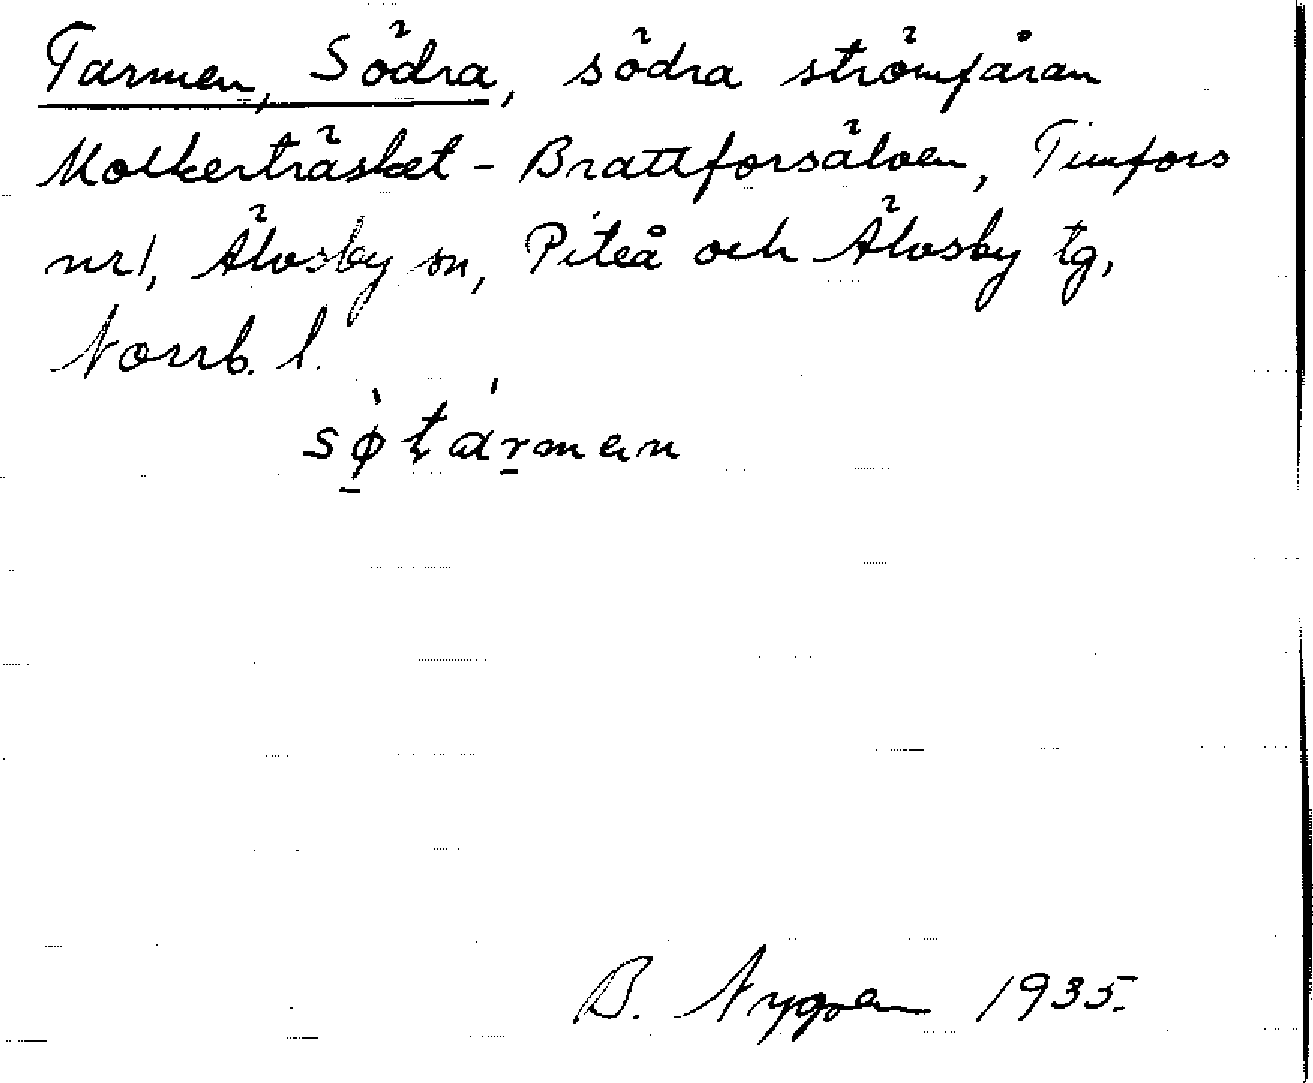 Tarmen, Södra, södra strömfåran
Molkerträsket - Brattforsälven, Timfors
nr 1, Älvsby sn, Piteå och Älvsby tg,
Norrb. l.
sø̱̀tár̠men
B. Nygren 1935.